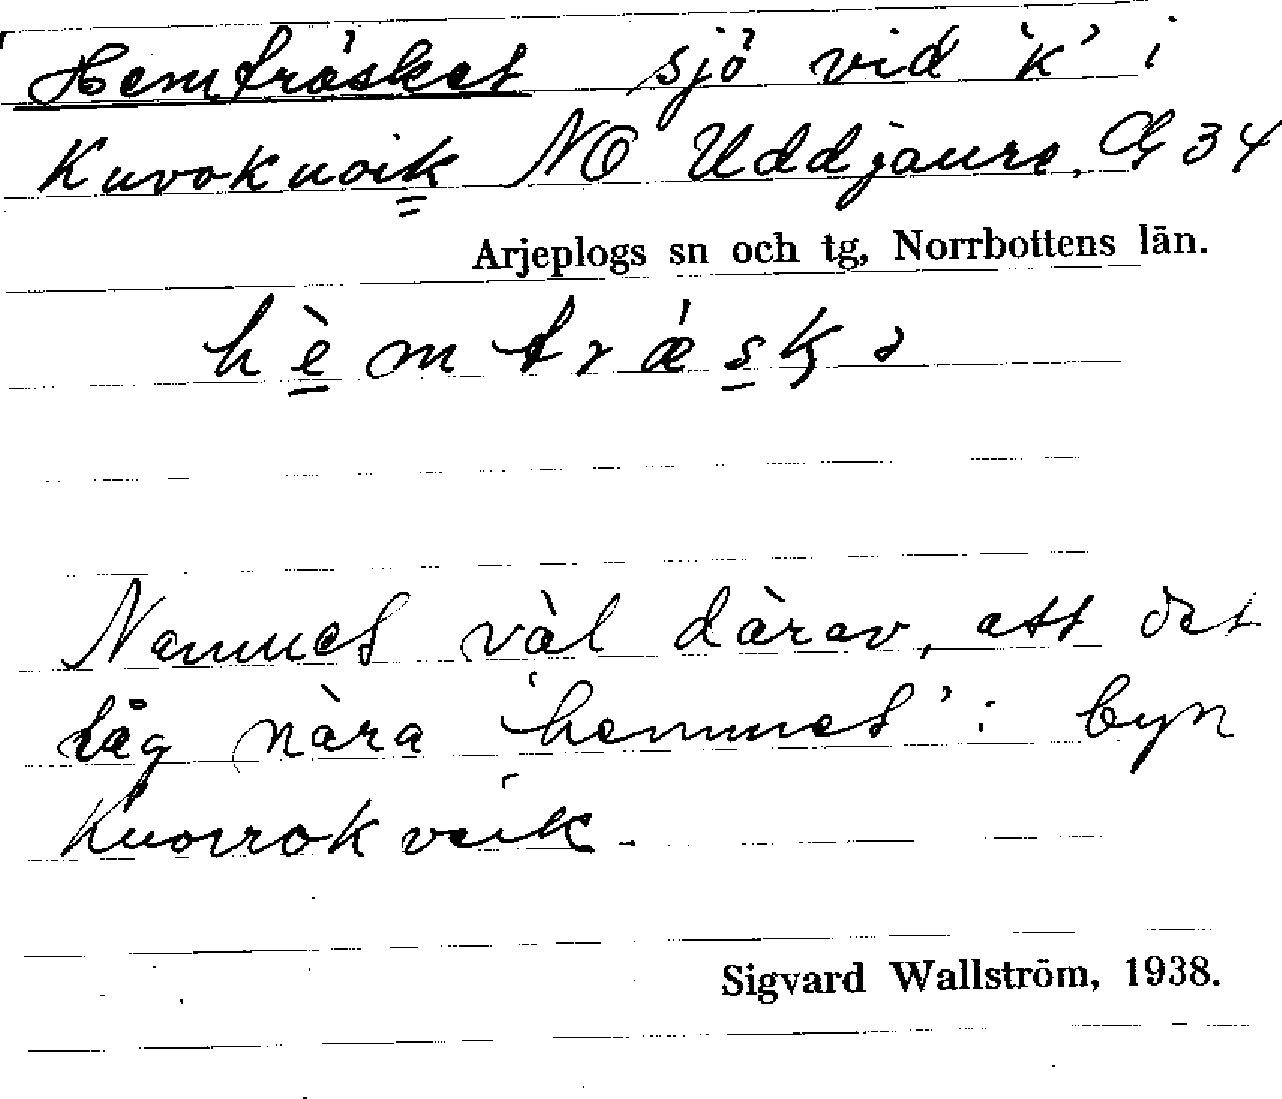 Hemträsket sjö vid 'k' i
Kuvokuoik NO Uddjaure, G 34
Arjeplogs sn och tg, Norrbottens län.
hèmtrǽskə
Namnet väl därav, att det
låg nära 'hemmet' i byn
Kuorrokveik.
Sigvard Wallström, 1938.